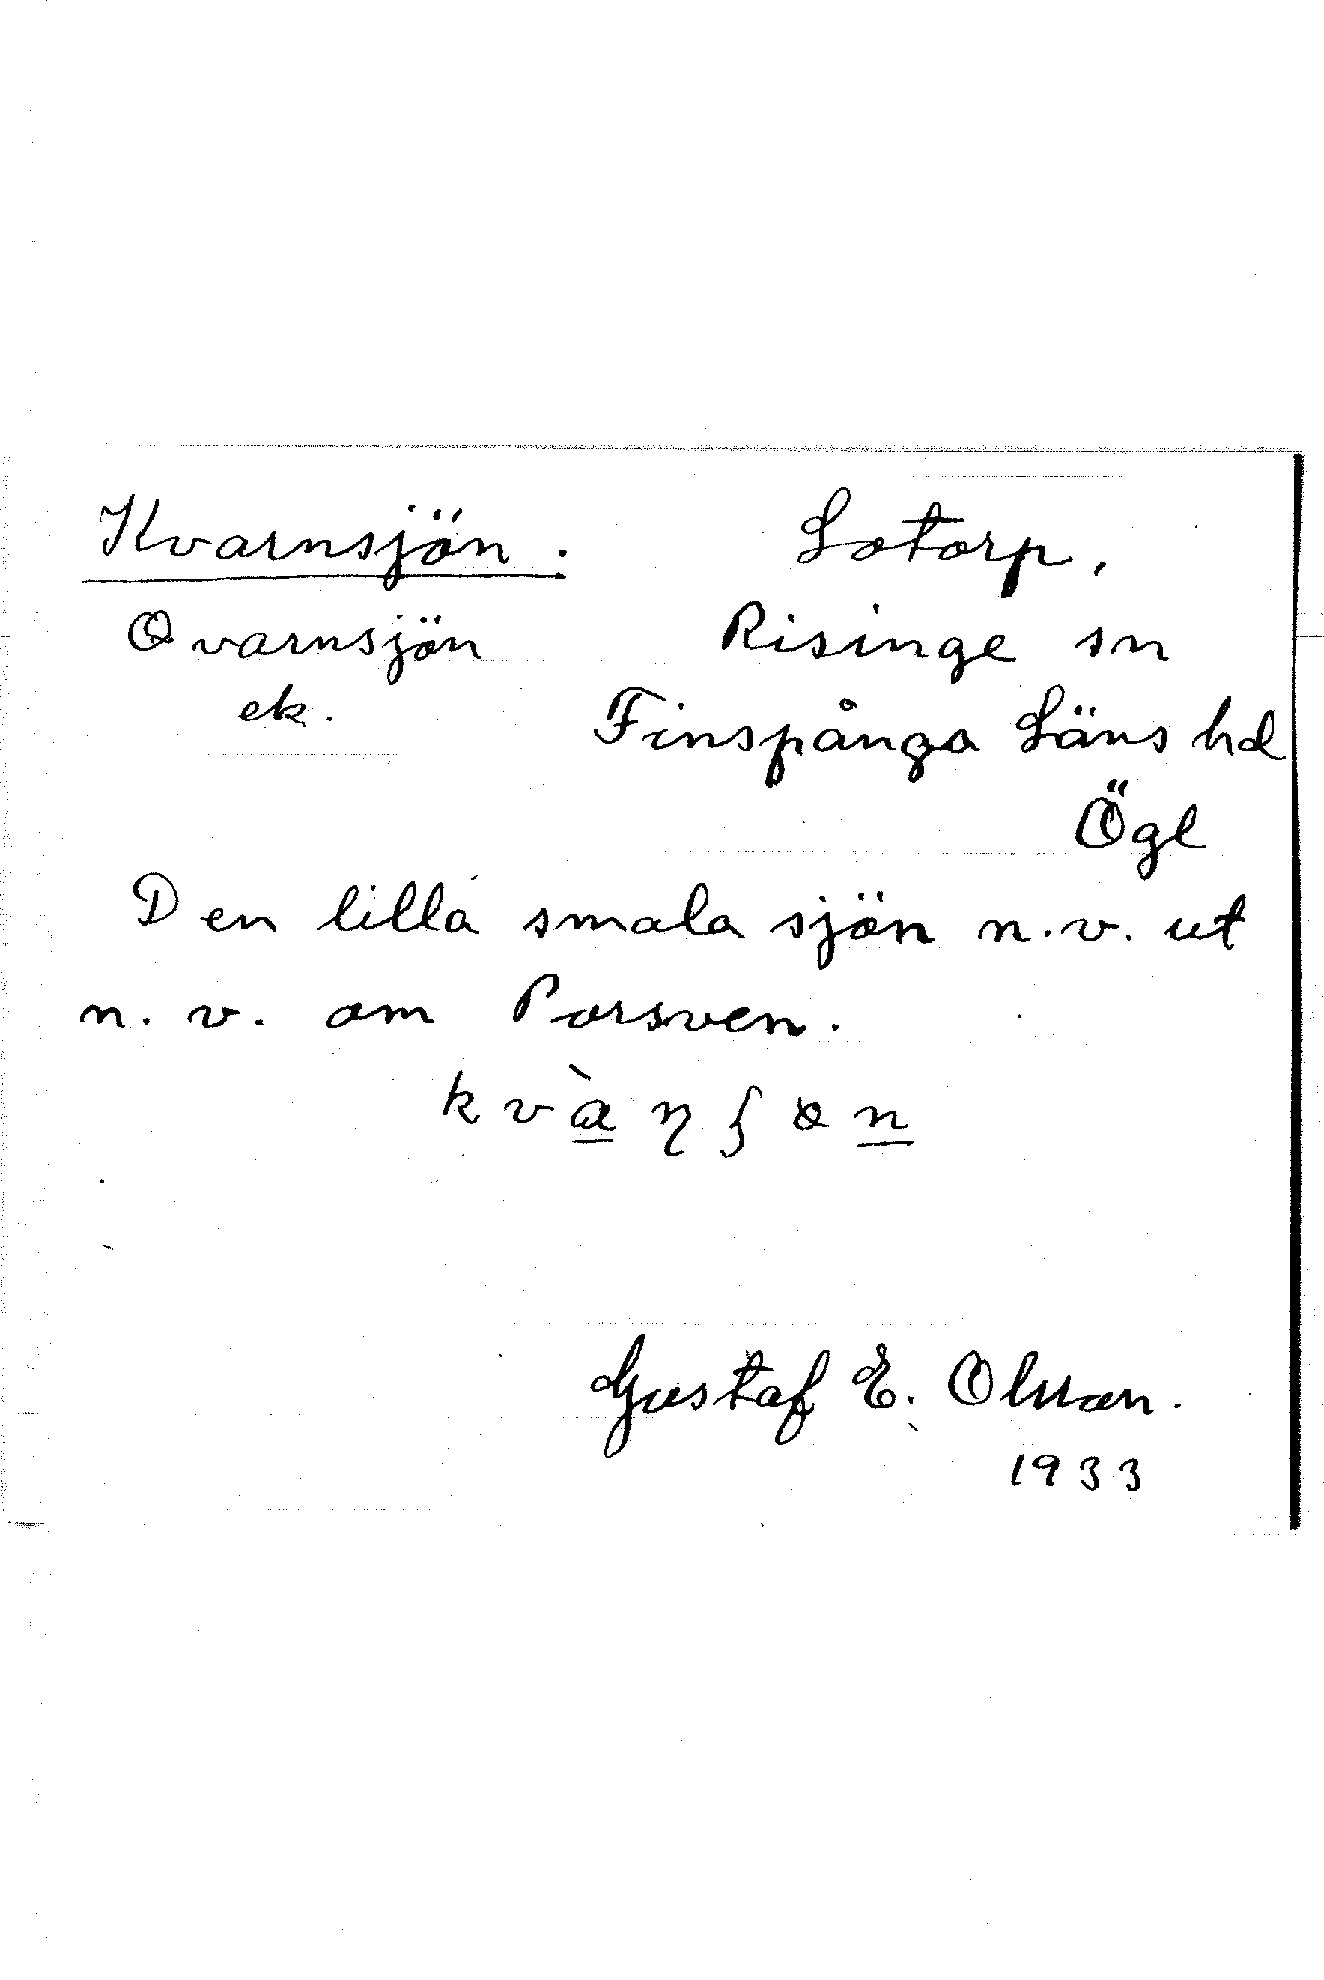 Kvarnsjön.
Lotorp,
Qvarnsjön
ek.
Risinge sn
Finspånga Läns hd
Ögl
Den lilla smala sjön n.v. ut
n.v. om Porsven.
kvàηʃøn
Gustaf E. Olsson.
1933